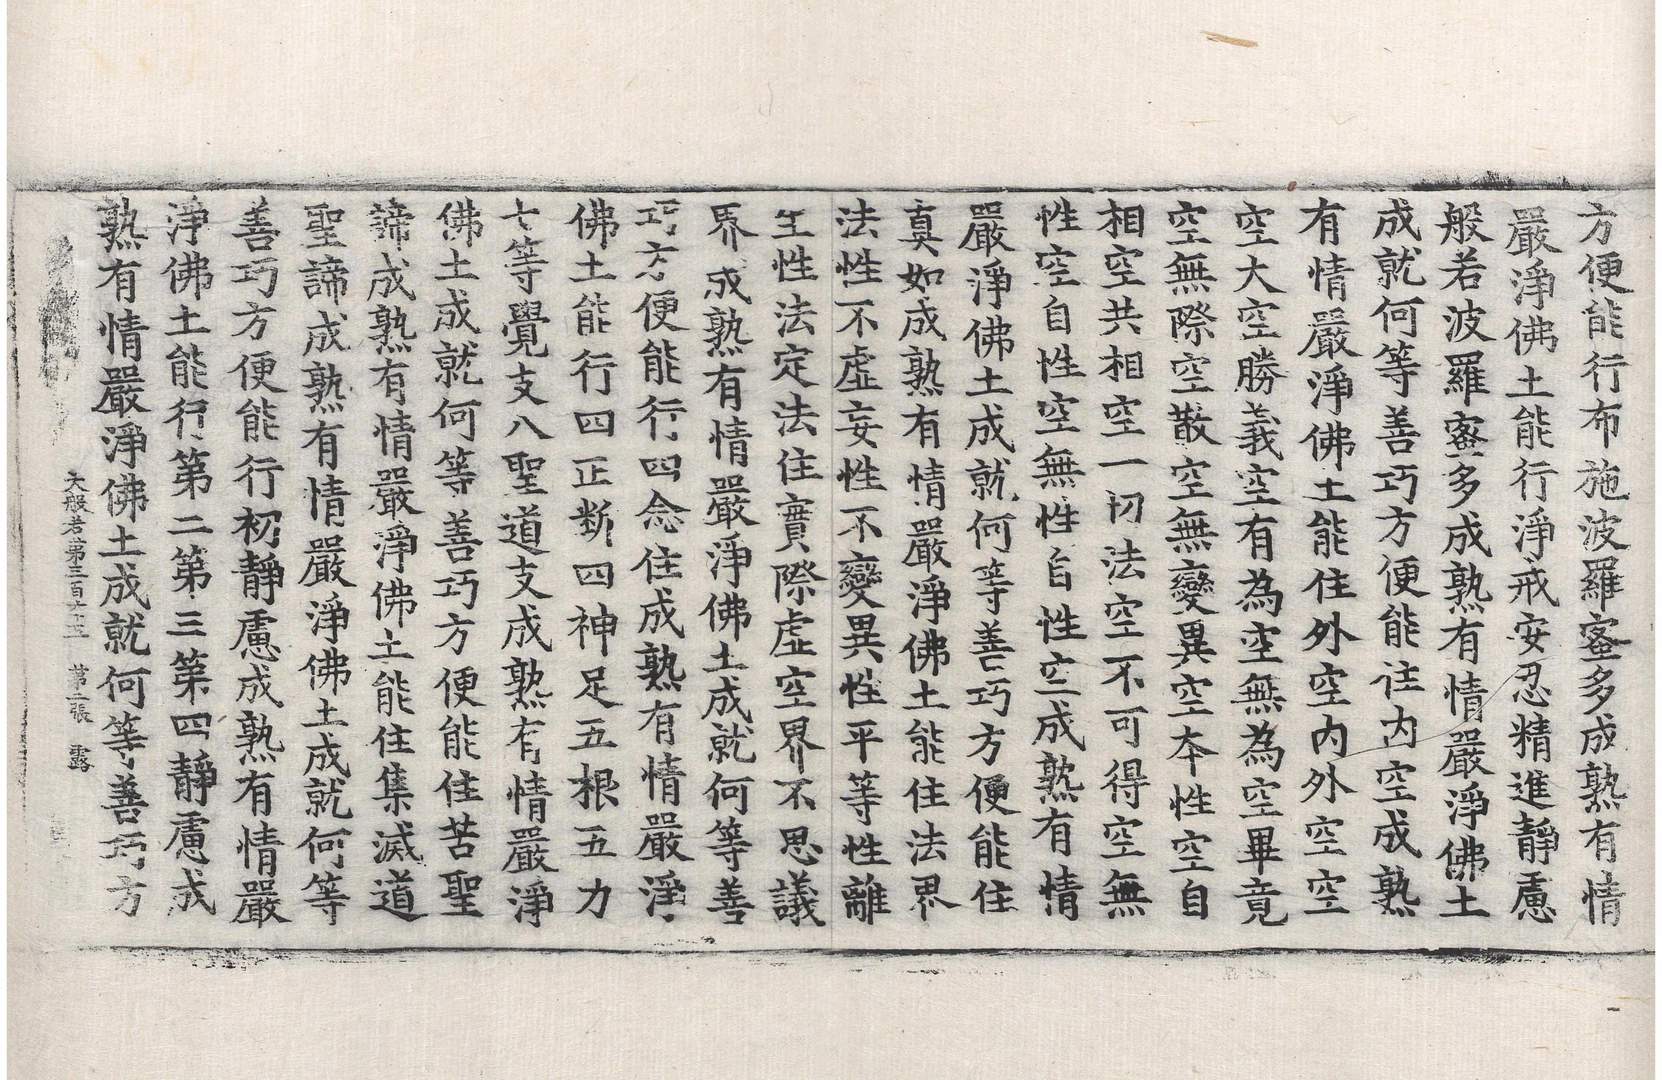 方便能行布施波羅蜜多成熟有情
嚴淨佛土能行淨戒安忍精進靜慮
般若波羅蜜多成熟有情嚴淨佛土
成就何等善巧方便能住內空成熟
有情嚴淨佛土能住外空內外空空
空大空勝義空有為空無為空畢竟
空無際空散空無變異空本性空自
相空共相空一切法空不可得空無
性空自性空無性自性空成熟有情
嚴淨佛土成就何等善巧方便能住
真如成熟有情嚴淨佛土能住法界
法性不虛妄性不變異性平等性離
生性法定法住實際虛空界不思議
界成熟有情嚴淨佛土成就何等善
巧方便能行四念住成熟有情嚴淨
佛土能行四正斷四神足五根五力
七等覺支八聖道支成熟有情嚴淨
佛土成就何等善巧方便能住苦聖
諦成熟有情嚴淨佛土能住集滅道
聖諦成熟有情嚴淨佛土成就何等
善巧方便能行初靜慮成熟有情嚴
淨佛土能行第二第三第四靜慮成
大般若第三百六十五 第二張 露
熟有情嚴淨佛土成就何等善巧方